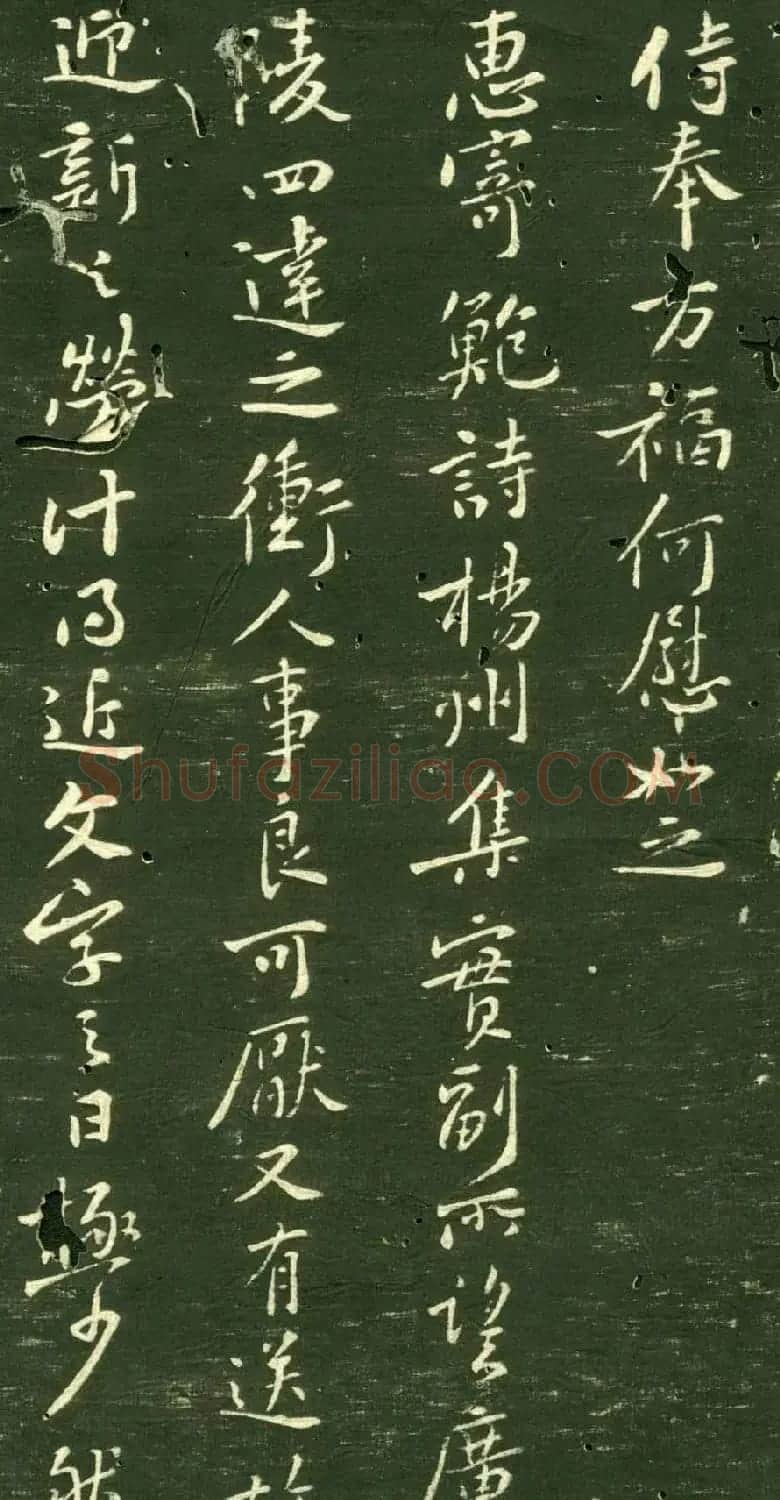 侍奉万福何慰如之
惠寄鮑詩楊州集實副所望廣
陵四達之衝人事良可厭又有送故
迎新之勞計得近文字之日極少然
Shufaziliao.COM